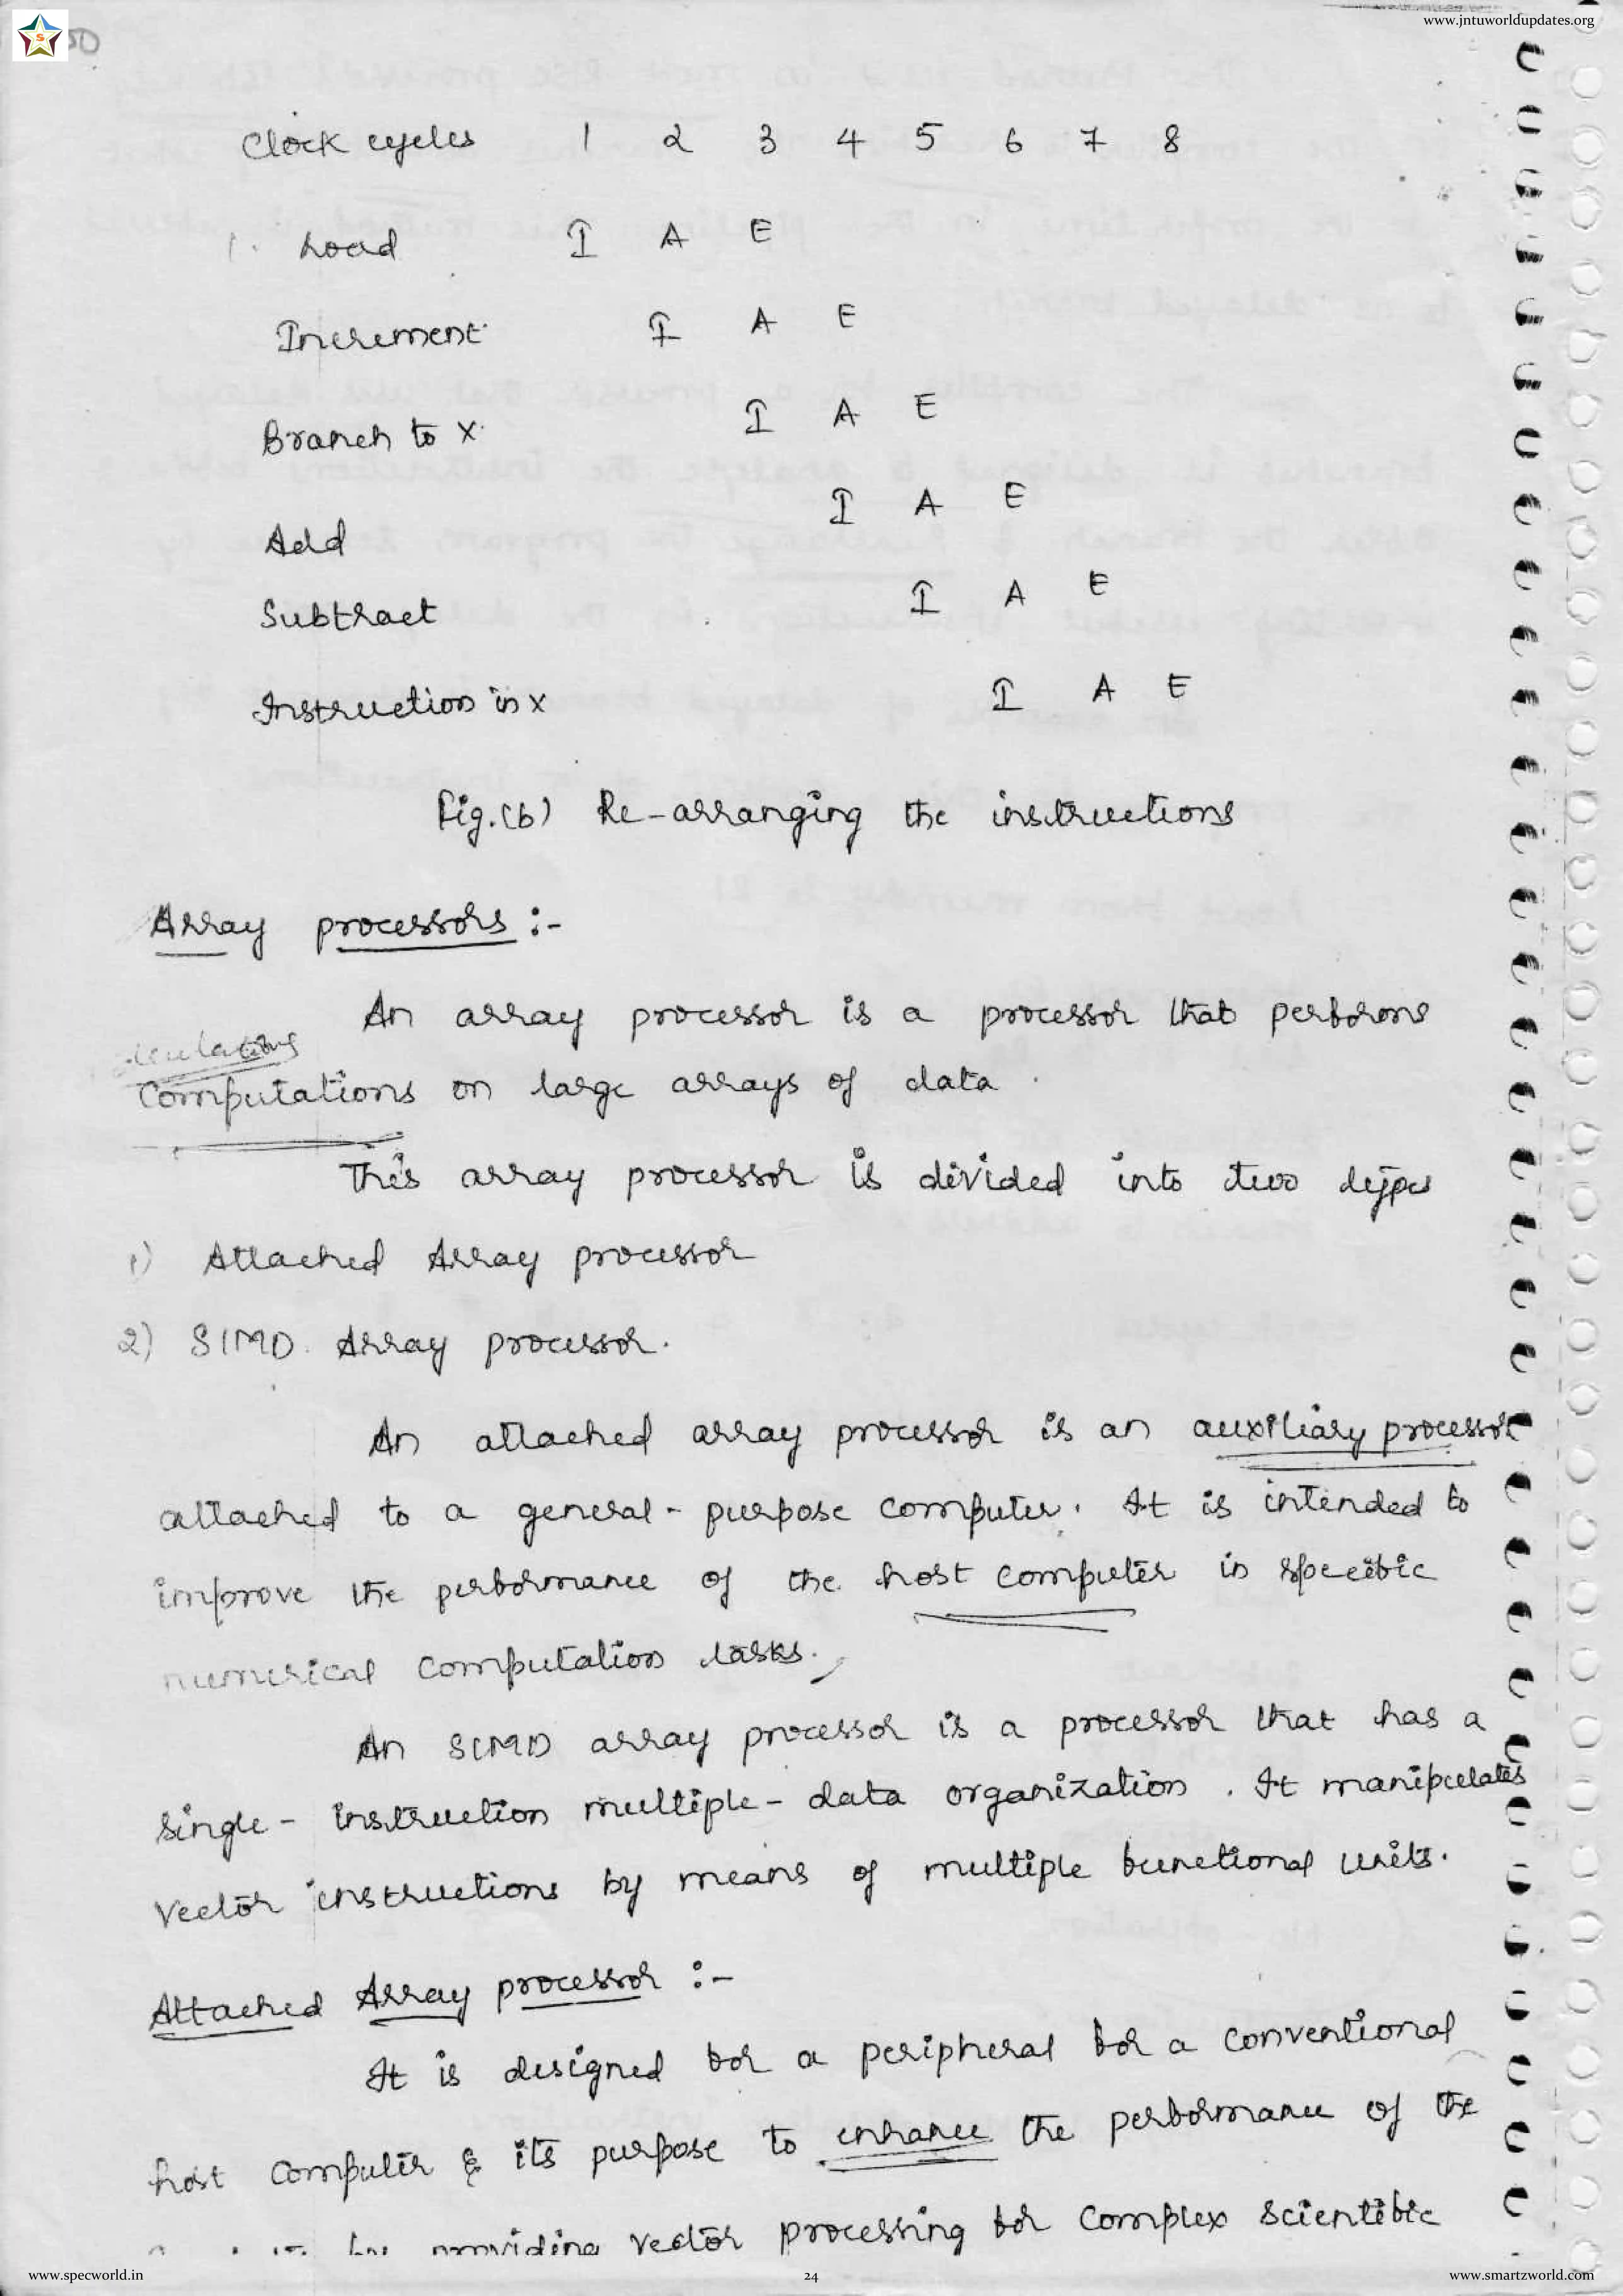 www.jntuworldupdates.org
S
50
Clock cycles 1 2 3 4 5 6 7 8
1. Load I A E
Increment I A E
Branch to X I A E
Add I A E
Subtract I A E
Instruction in X I A E
Fig.(b) Re-arranging the instructions
Array processors :-
An array processor is a processor that performs
calculations
Computations on large arrays of data.
This array processor is divided into two types
1) Attached Array processor
2) SIMD Array processor.
An attached array processor is an auxiliary processor
attached to a general-purpose computer. It is intended to
improve the performance of the host computer in specific
numerical computation tasks.
An SIMD array processor is a processor that has a
single-instruction multiple-data organization. It manipulates
vector instructions by means of multiple functional units.
Attached Array processor :-
It is designed for a peripheral for a conventional
host computer & its purpose to enhance the performance of the
by providing vector processing for complex scientific
www.specworld.in 24 www.smartzworld.com